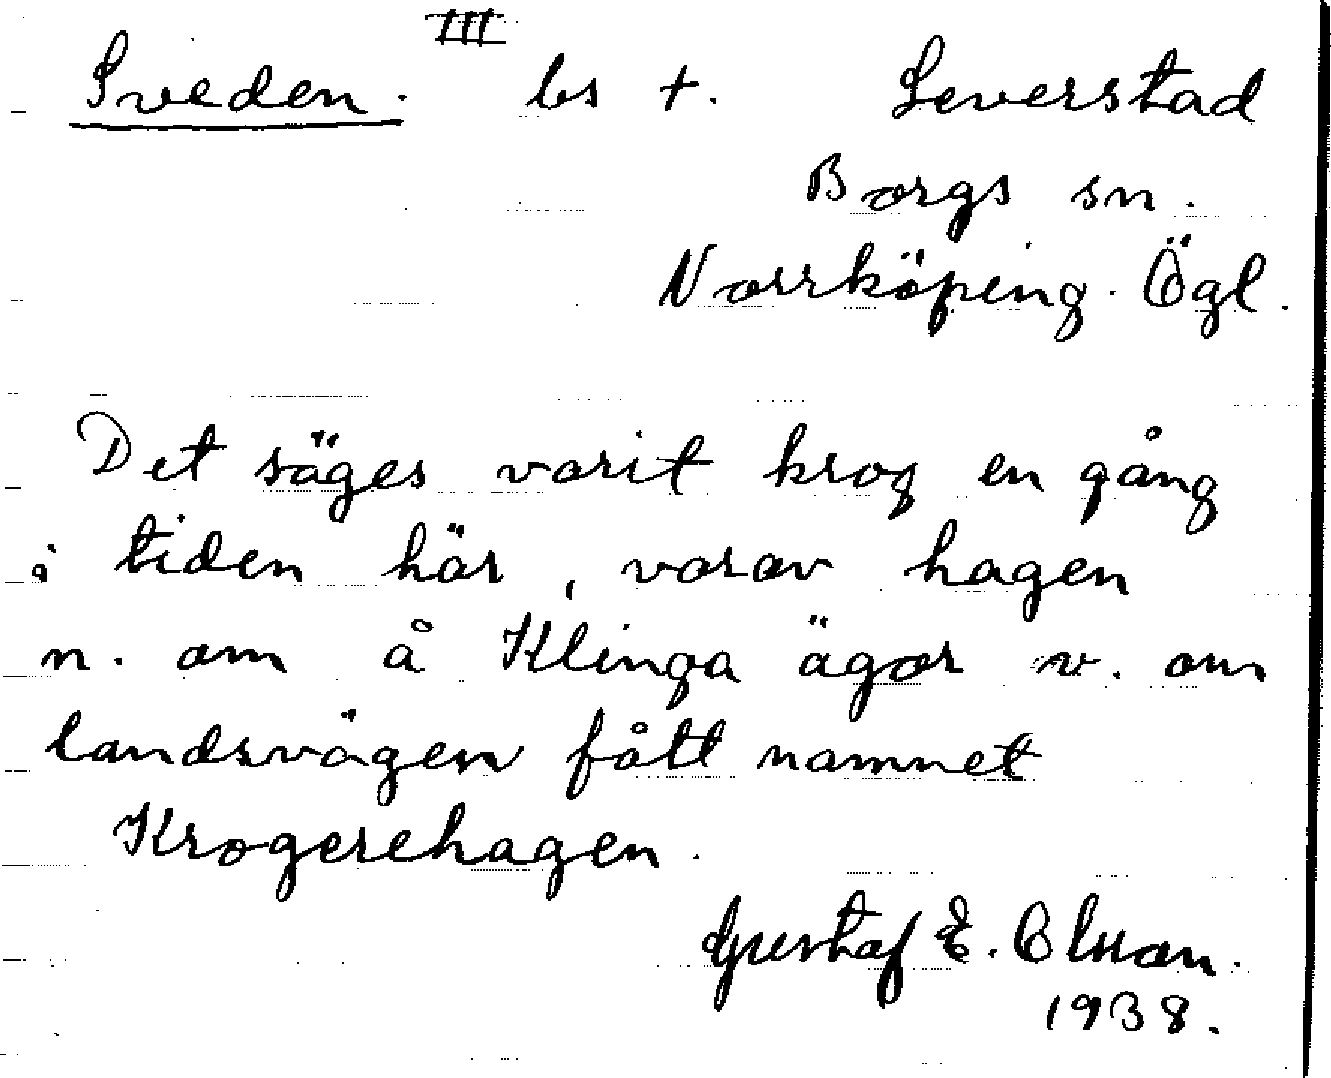 III
Sveden. bs +. Leverstad
Borgs sn.
Norrköping. Ögl.
Det säges varit krog en gång
i tiden här, varav hagen
n. om å Klinga ägor v. om
landsvägen fått namnet
Krogerehagen.
Gustaf E. Olsson.
1938.